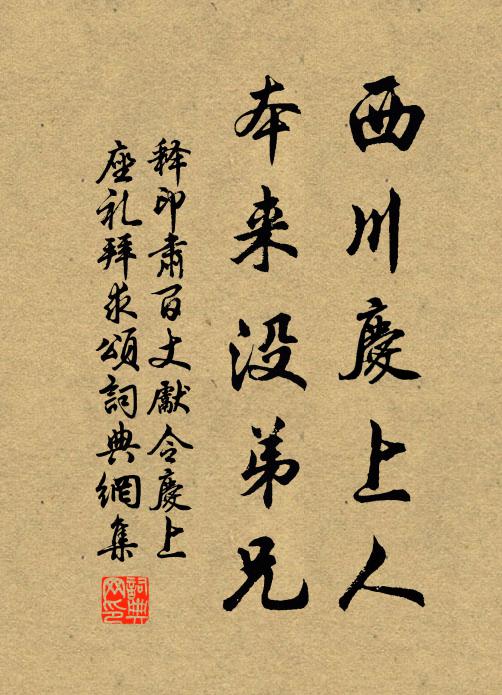 西川慶上人
本来没弟兄
释印肅百丈獻令慶上
座礼拜求頌詞典網集
詞典网印